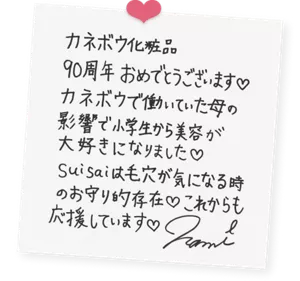 カネボウ化粧品
90周年 おめでとうございます♡
カネボウで働いていた母の
影響で小学生から美容が
大好きになりました♡
suisaiは毛穴が気になる時
のお守り的存在♡これからも
応援しています♡